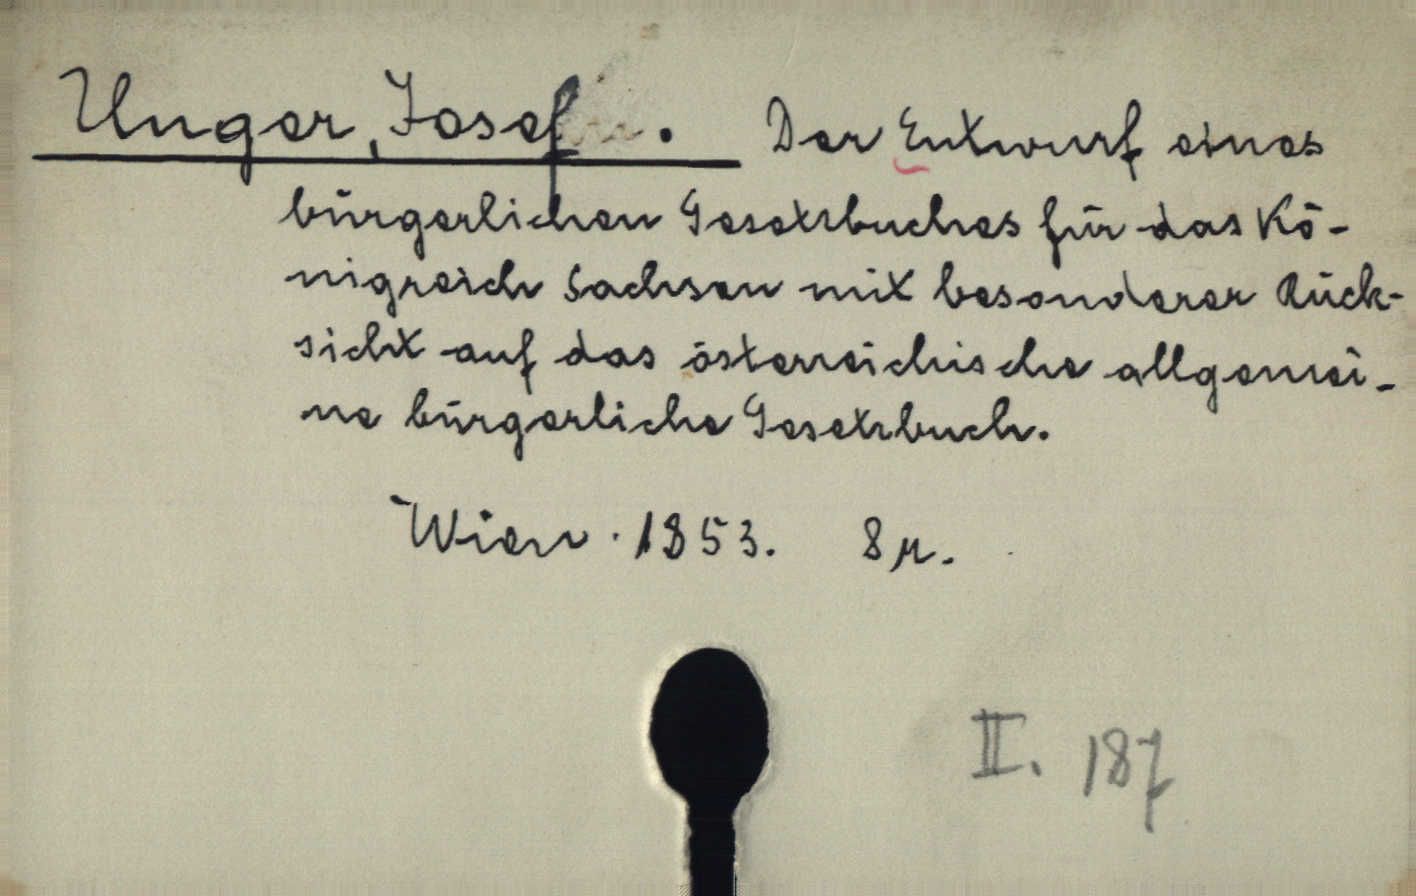 Unger, Josef. Der Entwurf eines
bürgerlichen Gesetzbuches für das Kö-
nigreich Sachsen mit besonderer Rück-
sicht auf das österreichische allgemei-
ne bürgerliche Gesetzbuch.
Wien. 1853. 8 r.
II. 187